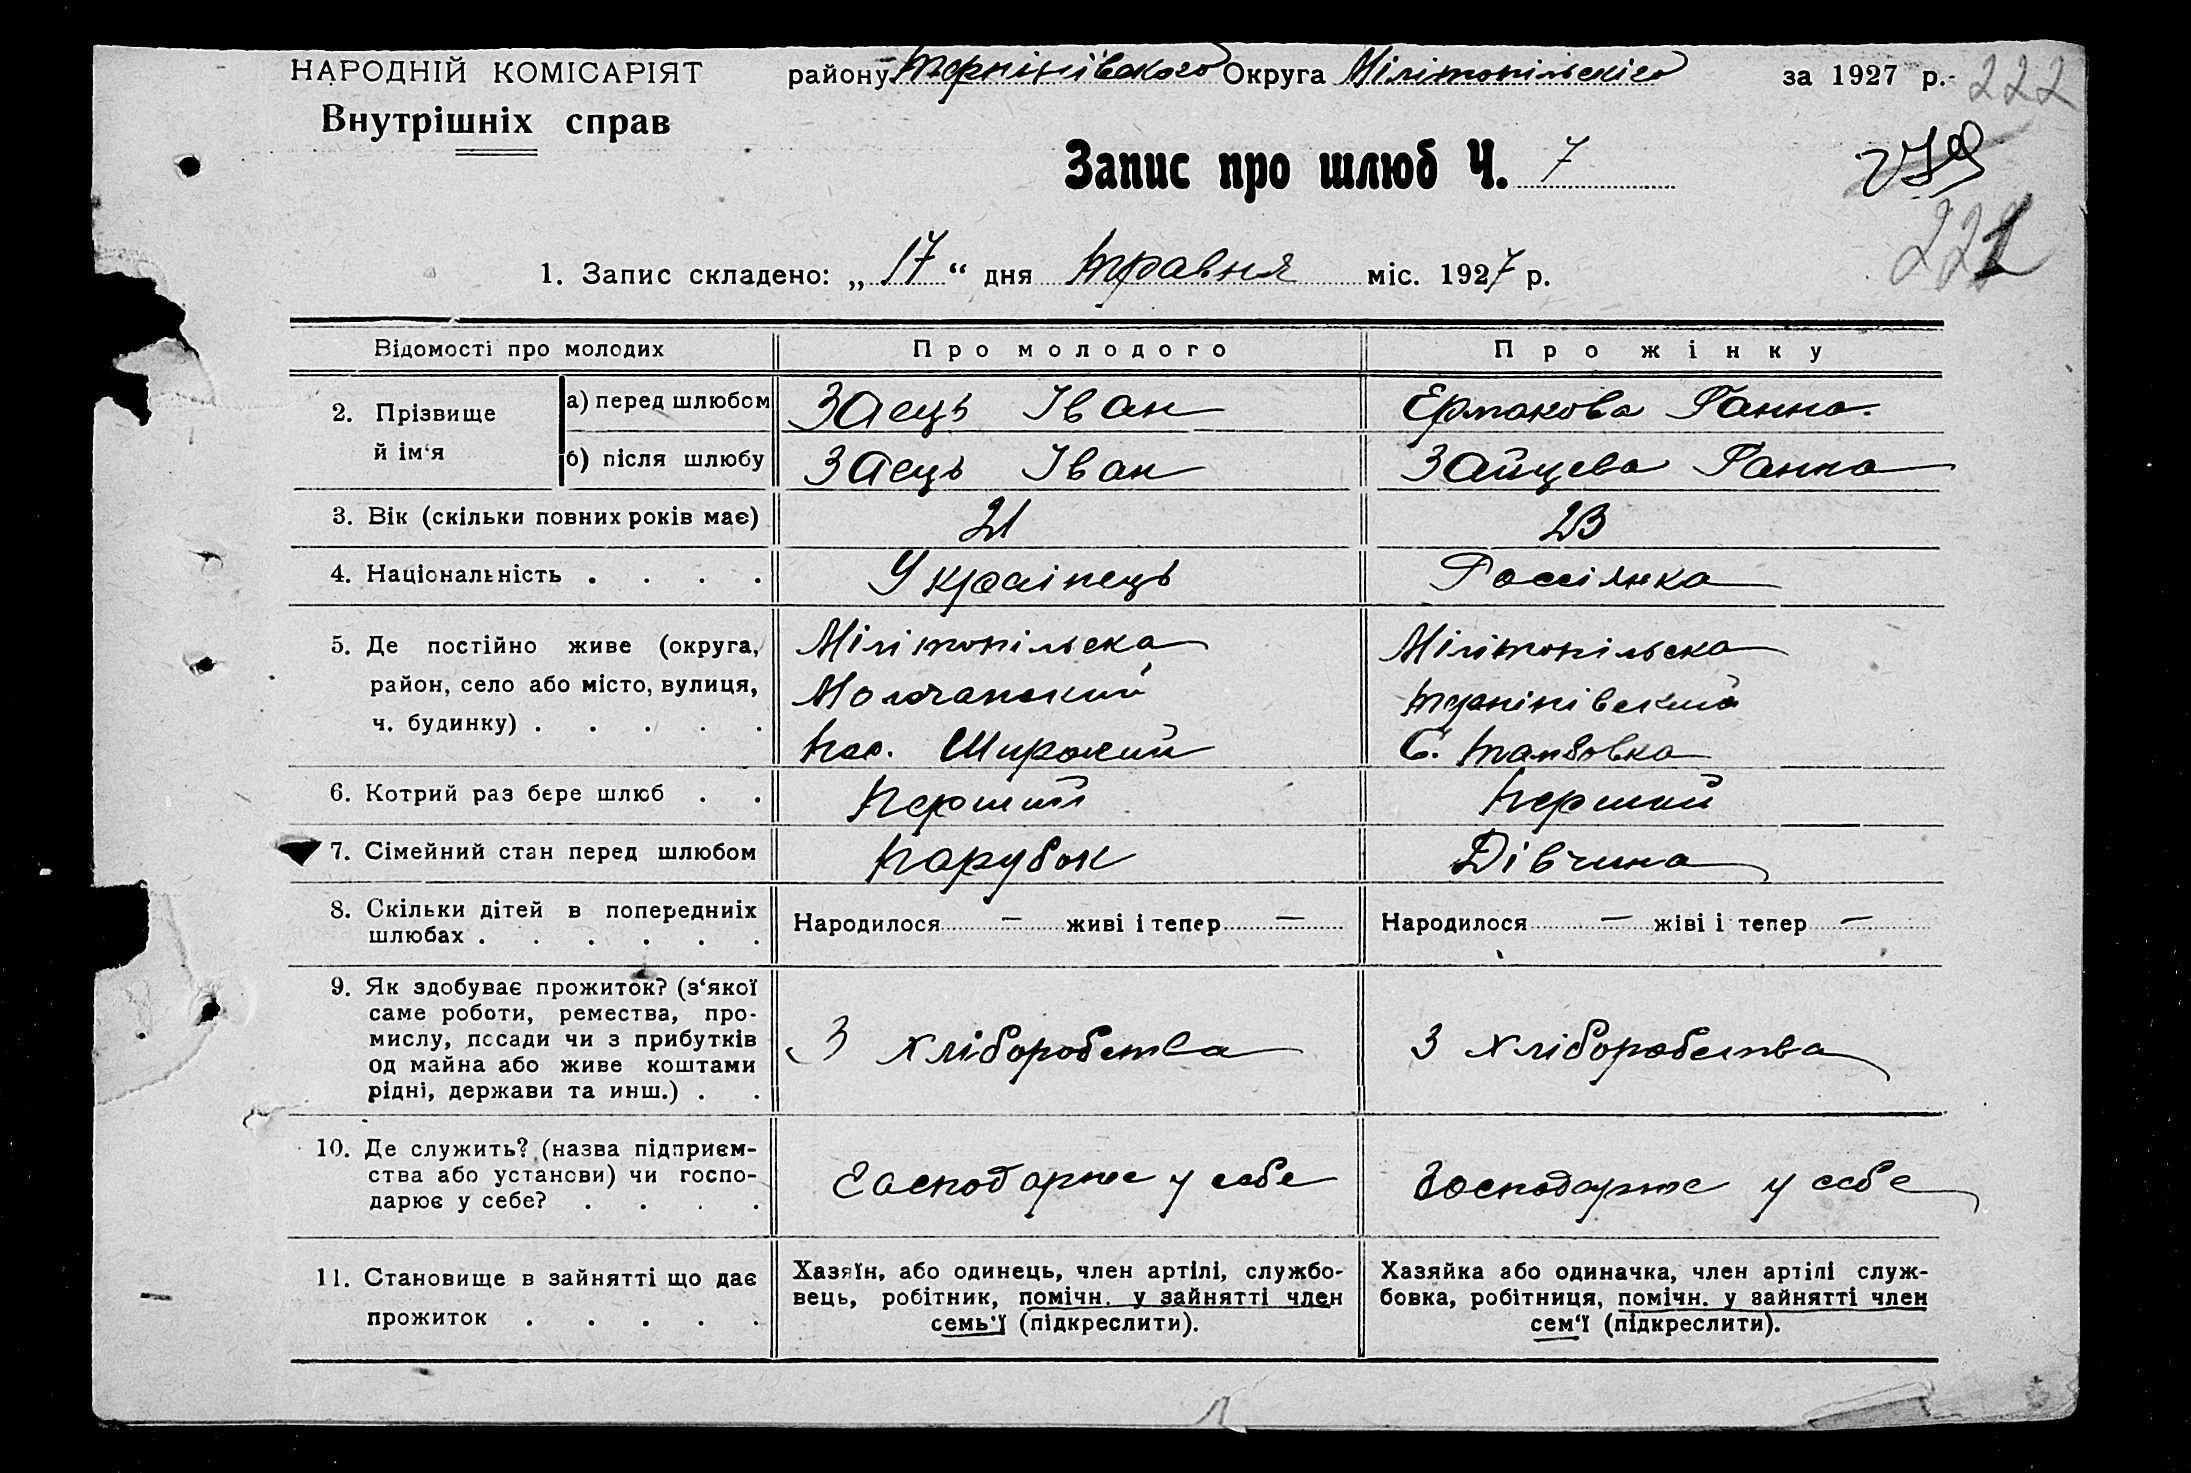 НАРОДНІЙ КОМІСАРІЯТ
Внутрішніх справ
району Терпінівського Округа Мілітопільскіго за 1927 р.
222
Запис про шлюб Ч. 7
221
1. Запис складено: „17“ дня травня міс. 1927 р.
Відомості про молодих Про молодого Про жінку
2. Прізвище й ім‘я а) перед шлюбом Заець Іван Ермакова Ганна.
б) після шлюбу Заець Іван Зайцева Ганна
3. Вік (скільки повних років має) 21 23
4. Національність . . . . Українець Россіянка
5. Де постійно живе (округа, Мілітопільска Мілітопільска
район, село або місто, вулиця, Молочанский Терпінівский
ч. будинку) . . . . . Пос. Широкий С. Тамбовка
6. Котрий раз бере шлюб . . Перший Перший
7. Сімейний стан перед шлюбом Парубок Дівчина
8. Скільки дітей в попередниіх
шлюбах . . . . . . Народилося — живі і тепер — Народилося — жіві і тепер —
9. Як здобуває прожиток? (з‘якої
саме роботи, ремества, про-
мислу, посади чи з прибутків
од майна або живе коштами
рідні, держави та инш.) . . З хліборобства З хліборобства
10. Де служить? (назва підприєм-
ства або установи) чи госпо-
дарює у себе? . . . . Господарює у себе Господарює у себе
11. Становище в зайнятті що дає
прожиток . . . . .
Хазяїн, або одинець, член артілі, службо-
вець, робітник, помічн. у зайнятті член
семь‘ї (підкреслити).
Хазяйка або одиначка, член артілі служ-
бовка, робітниця, помічн. у зайнятті член
сем‘ї (підкреслити).